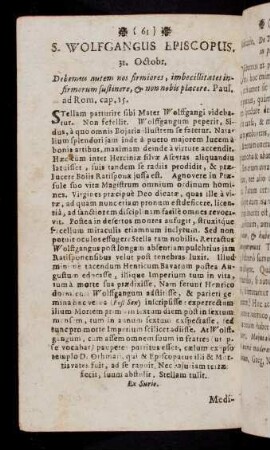 ( 61 )
S. WOLFGANGUS EPISCOPUS,
31. Octobr.
Debemus autem nos firmiores, imbecillitates in-
firmorum sustinere, & non nobis placere. Paul.
ad Rom, cap, 15.
STellam parturire sibi Mater Wolffgangi videba-
tur. Non fefellit. Wolffgangum peperit, Si-
dus, à quo omnis Bojaria illustrem se fatetur. Nata-
lium splendori jam inde à puero modestorum lucem
bonis artibus, maximam deinde à virtute accendit.
Hæ lucem inter Herciniæ silvæ Asceras aliquandiu
latuisset, suis tandem se radiis prodidit, &
lucere Solis Ratisponæ jussa est. Agnovere in Præ-
sule suo vitæ Magistrum omnium ordinum homi-
nes. Virgines præcipuè Deo dicatæ, quas ille ad
normam, quæ aut nunquam eronum est deficere, licenti-
â, ad sanctiorem disciplinam facilè omnes revoca-
vit. Postea in desertos montes aufugit, situitque
Sicellum miraculis etiamnum inclytum. Sed non
potuit oculos effugere Stella tam nobilis. Retractus
Wolffgangus post longam absentiam pulchrius jam
Ratisponensibus velut post tenebras luxit. Illud
in ac tacendum Henricum Bavarum postea Au-
gustum sse, illique Imperium tum in vita,
tum à morte sua prædixisse. Nam ferunt Henrico
dormienti Wolffgangum adstitisse, & parieti ge-
minas hæc verba (Post Sex) inscripsisse: experrectum
illum Mortem primùm sextum diem post in sextum
mensem, tum in annum sextum exspectasse, sed
tunc pro morte Imperium scilicet adiisse. At Wolff-
gangum, cum assem omnem suum in fratres (ut ip-
se vocabat) pauperes partitus esset, cælum ex ipso
templo D. Othmari, qui & Episcopatus illi & Mor-
tis vates fuit, ad se rapuit. Nec cujusquam terræ
socii, suum abstulit, Stellam tulit.
Ex Surio.
Medi-